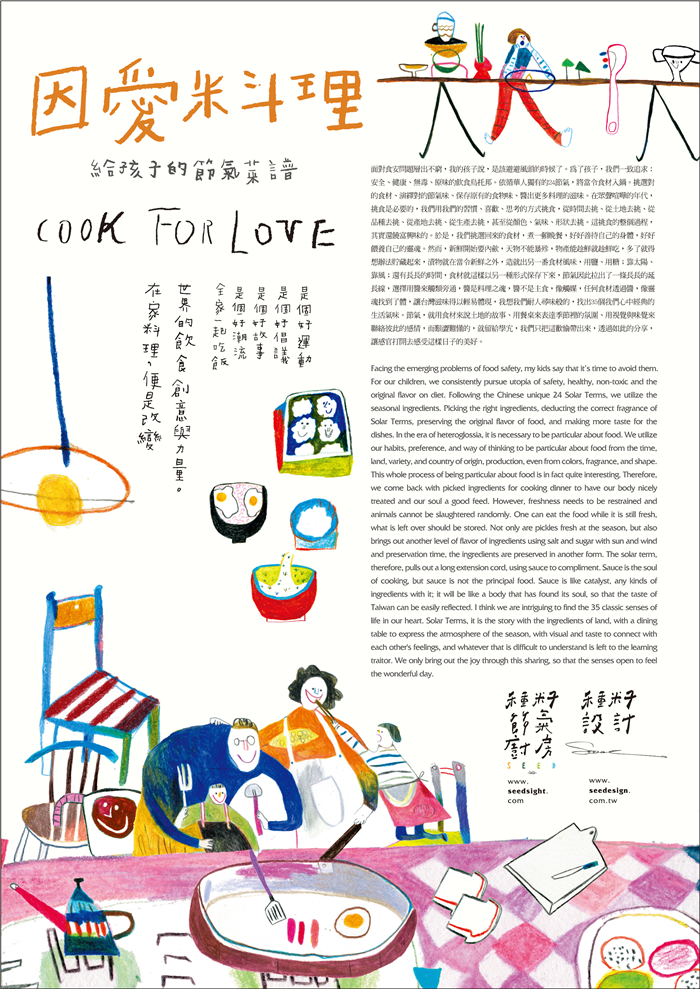 因愛料理
給孩子的節氣菜譜
COOK FOR LOVE
是個好運動
是個好倡議
是個好故事
是個好潮流
全家一起吃飯
世界的飲食創意與力量。
在家料理，便是改變
面對食安問題層出不窮，我的孩子說，是該避避風頭的時候了。為了孩子，我們一致追求：
安全、健康、無毒、原味的飲食烏托邦。依循華人獨有的24節氣，將當令食材入鍋。挑選對
的食材、演繹對的節氣味、保存原有的食物味，醬出更多料理的滋味。在眾聲喧嘩的年代，
挑食是必要的，我們用我們的習慣、喜歡、思考的方式挑食，從時間去挑、從土地去挑、從
品種去挑、從產地去挑、從生產去挑，甚至從顏色、氣味、形狀去挑。這挑食的整個過程，
其實還饒富興味的。於是，我們挑選回來的食材，煮一頓晚餐，好好善待自己的身體，好好
餵養自己的靈魂。然而，新鮮開始要內斂，天物不能暴殄，物產能趁鮮就趁鮮吃，多了就得
想辦法貯藏起來，漬物就在當令新鮮之外，造就出另一番食材風味，用鹽、用糖；靠太陽、
靠風；還有長長的時間，食材就這樣以另一種形式保存下來，節氣因此拉出了一條長長的延
長線，選擇用醬來觸類旁通，醬是料理之魂，醬不是主食，像觸媒，任何食材透過醬，像靈
魂找到了體，讓台灣滋味得以輕易體現，我想我們耐人尋味般的，找出35個我們心中經典的
生活氣味。節氣，就用食材來說土地的故事、用餐桌來表達季節裡的氛圍、用視覺與味覺來
聯絡彼此的感情，而艱澀難懂的，就留給學究，我們只把這歡愉帶出來，透過如此的分享，
讓感官打開去感受這樣日子的美好。
Facing the emerging problems of food safety, my kids say that it's time to avoid them.
For our children, we consistently pursue utopia of safety, healthy, non-toxic and the
original flavor on diet. Following the Chinese unique 24 Solar Terms, we utilize the
seasonal ingredients. Picking the right ingredients, deducting the correct fragrance of
Solar Terms, preserving the original flavor of food, and making more taste for the
dishes. In the era of heteroglossia, it is necessary to be particular about food. We utilize
our habits, preference, and way of thinking to be particular about food from the time,
land, variety, and country of origin, production, even from colors, fragrance, and shape.
This whole process of being particular about food is in fact quite interesting. Therefore,
we come back with picked ingredients for cooking dinner to have our body nicely
treated and our soul a good feed. However, freshness needs to be restrained and
animals cannot be slaughtered randomly. One can eat the food while it is still fresh,
what is left over should be stored. Not only are pickles fresh at the season, but also
brings out another level of flavor of ingredients using salt and sugar with sun and wind
and preservation time, the ingredients are preserved in another form. The solar term,
therefore, pulls out a long extension cord, using sauce to compliment. Sauce is the soul
of cooking, but sauce is not the principal food. Sauce is like catalyst, any kinds of
ingredients with it; it will be like a body that has found its soul, so that the taste of
Taiwan can be easily reflected. I think we are intriguing to find the 35 classic senses of
life in our heart. Solar Terms, it is the story with the ingredients of land, with a dining
table to express the atmosphere of the season, with visual and taste to connect with
each other's feelings, and whatever that is difficult to understand is left to the learning
traitor. We only bring out the joy through this sharing, so that the senses open to feel
the wonderful day.
種籽
節氣
廚房
SEED
www.
seedsight.
com
種籽
設計
www.
seedesign.
com.tw